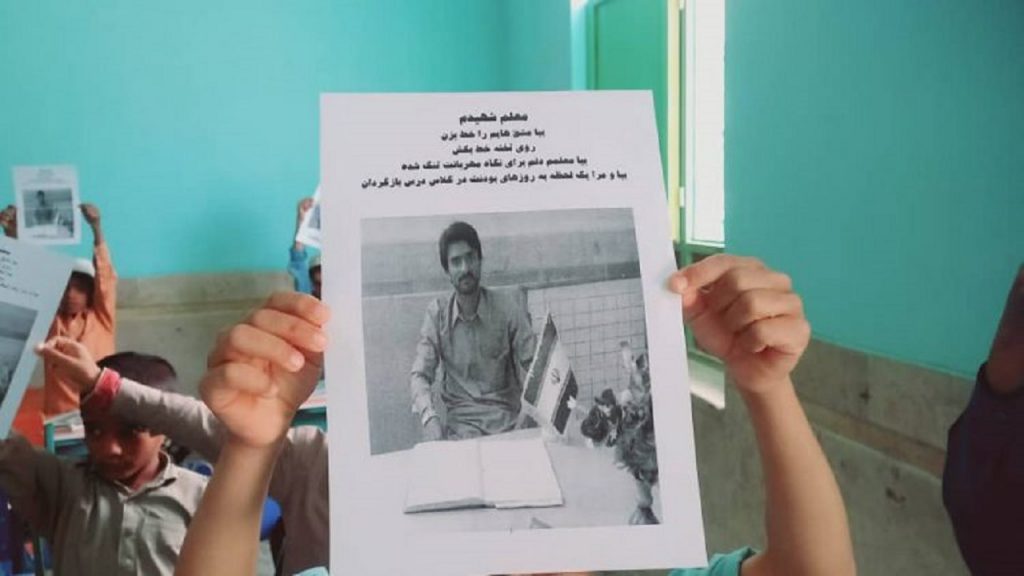 معلم شهیدم
بیا مشق هایم را خط بزن
روی تخته خط بکش
بیا معلمم دلم برای نگاه مهربانت تنگ شده
بیا و مرا یک لحظه به روزهای بودنت در کلاس درس بازگردان